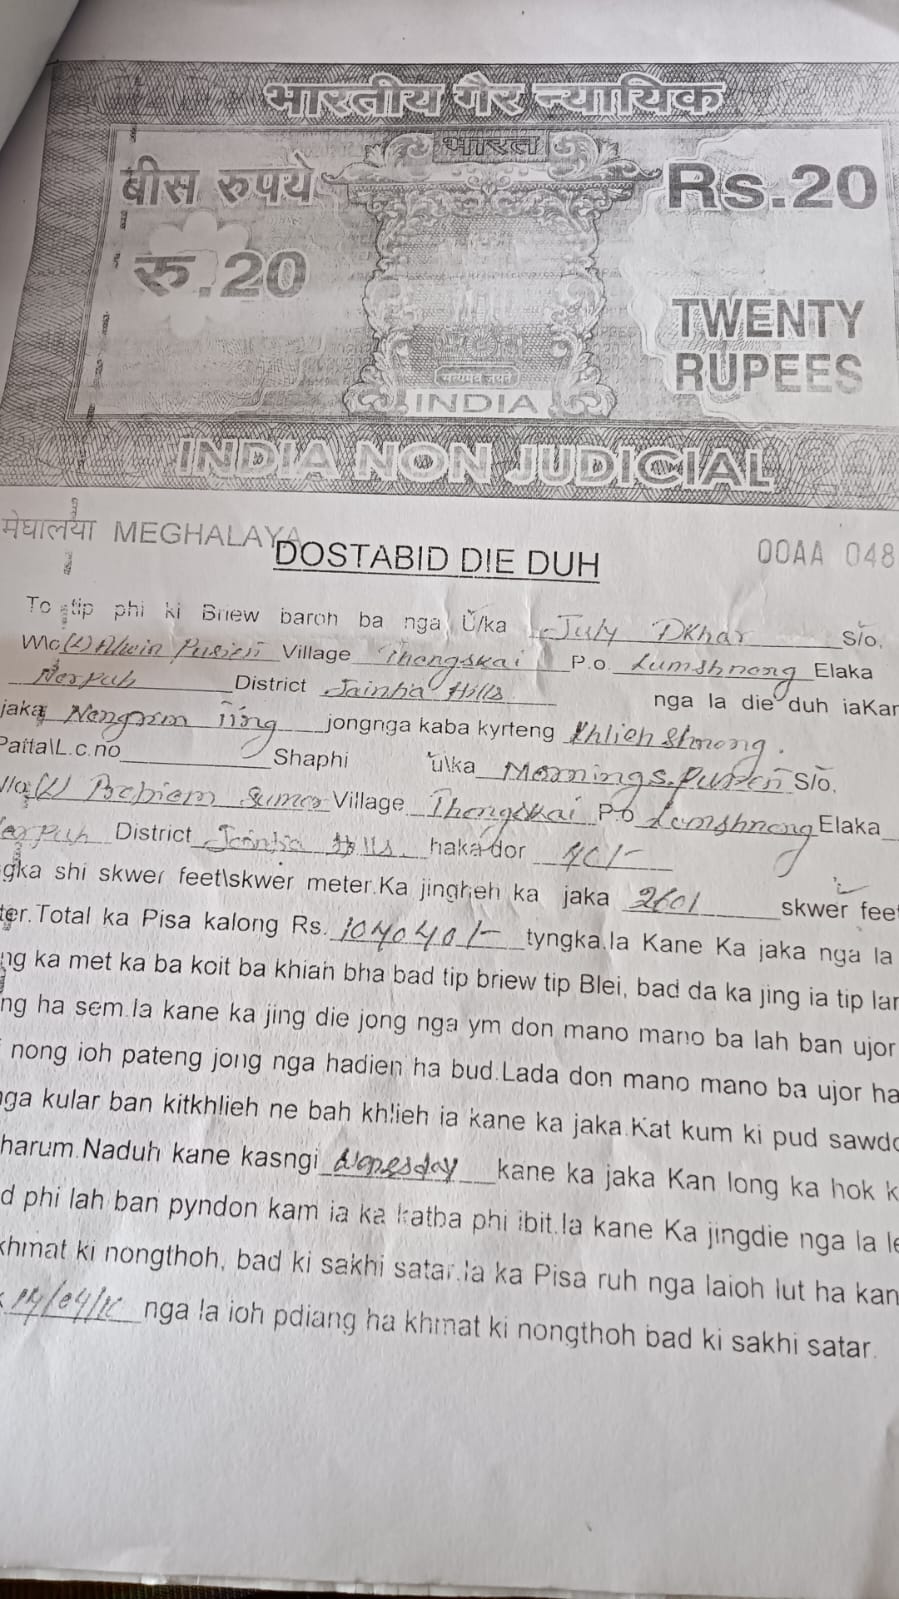 भारतीय गैर न्यायिक
भारत
बीस रुपये
Rs.20
रु.20
TWENTY
RUPEES
सत्यमेव जयते
INDIA
INDIA NON JUDICIAL
मेघालय MEGHALAYA
00AA 048
DOSTABID DIE DUH
To tip phi ki Briew baroh ba nga U/ka July Dkhar S/o,
W/o (L) Village Thangskai P.o. Lumshnong Elaka
Narpuh District Jaintia Hills nga la die duh ia Kar
jaka jong jongnga kaba kyrteng Khlieh Shnong.
Patta\L.c.no Shaphi u\ka Mornings. S/o,
(L) Village Thangskai P.o Lumshnong Elaka
Narpuh District Jaintia Hills haka dor
gka shi skwer feet\skwer meter.Ka jingheh ka jaka 2601 skwer feet
ter.Total ka Pisa kalong Rs. 104040/- tyngka.Ia Kane Ka jaka nga la
ng ka met ka ba koit ba khiah bha bad tip briew tip Blei, bad da ka jing ia tip lan
ng ha sem.Ia kane ka jing die jong nga ym don mano mano ba lah ban ujor
nong ioh pateng jong nga hadien ha bud.Lada don mano mano ba ujor ha
nga kular ban kitkhlieh ne bah khlieh ia kane ka jaka.Kat kum ki pud sawdo
harum.Naduh kane kasngi kane ka jaka Kan long ka hok k
d phi lah ban pyndon kam ia ka katba phi ibit.Ia kane Ka jingdie nga la le
khmat ki nongthoh, bad ki sakhi satar.Ia ka Pisa ruh nga laioh lut ha kan
nga la ioh pdiang ha khmat ki nongthoh bad ki sakhi satar.